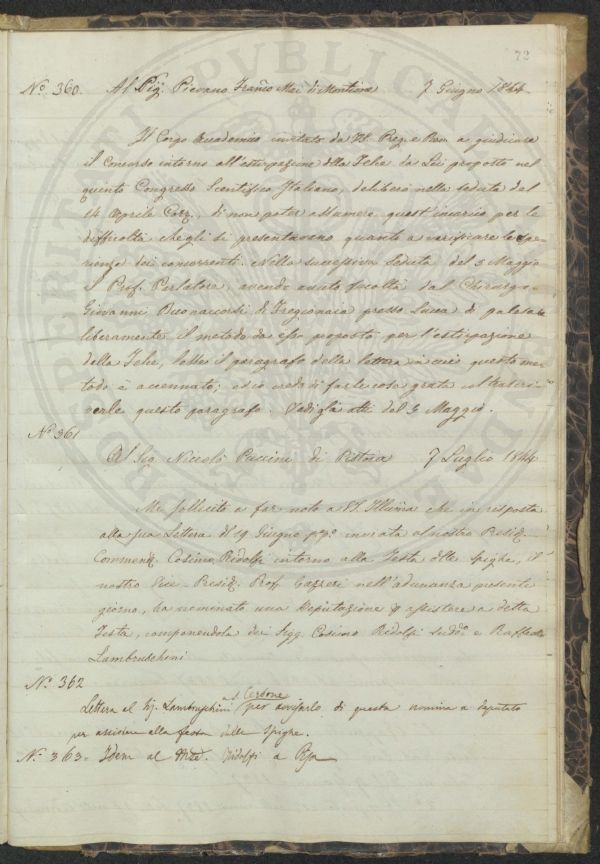 72
N.o 360. Al Sig. Pievano Franco Mei di Montione 7 Giugno 1844
PROSPERITATI PUBLICAE AUGENDAE
Il Corpo Accademico invitato da VS. Preg. e Rev. a giudicare
il Concorso intorno all'estirpazione della Felce da Lei proposto nel
quinto Congresso Scentifico Italiano, deliberò nella seduta del
14 Aprile Corr., di non poter assumere quest'incarico per le
difficoltà che gli si presentavano quanto a verificare le spe-
rienze dei concorrenti. Nella successiva seduta del 5 Maggio
il Prof. Parlatore, avendo avuto facoltà dal Chirurgo
Giovanni Buonaccorsi di Fregionaia presso Lucca di palesare
liberamente il metodo da esso proposto per l'estirpazione
della Felce, lesse il paragrafo della lettera in cui questo me-
todo è accennato; ed io credo di farle cosa grata col trascri-
verle questo paragrafo. Vedi gli atti del 5 Maggio.
N.o 361
Al Sig. Niccolò Puccini di Pistoia 7 Luglio 1844
Mi sollecito a far noto a VS. Illma che in risposta
alla sua Lettera del 19 Giugno p.p.o inviata al nostro Presid.
Commend. Cosimo Ridolfi intorno alla Festa delle Spighe, il
nostro Vice-Presid. Prof. Gazzeri nell'adunanza presente
giorno, ha nominato una Deputazione p assistere a detta
Festa, componendola dei Sigg. Cosimo Ridolfi sudd.o e Raffaello
Lambruschini
N.o 362
a S. Cerbone
Lettera al Sig. Lambruschini per avvisarlo di questa nomina a deputato
per assistere alla festa delle Spighe.
N.o 363. Idem al March. Ridolfi a Pisa